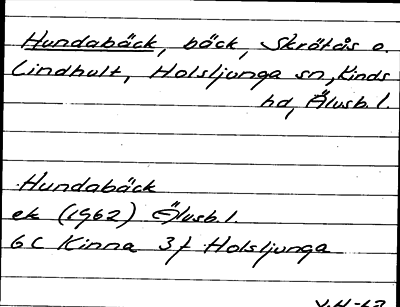 Hundabäck, bäck, Skråtås o.
Lindhult, Holsljunga sn, Kinds
hd, Älvsb. l.
Hundabäck
ek (1962) Älvsb. l.
6C Kinna 3f Holsljunga